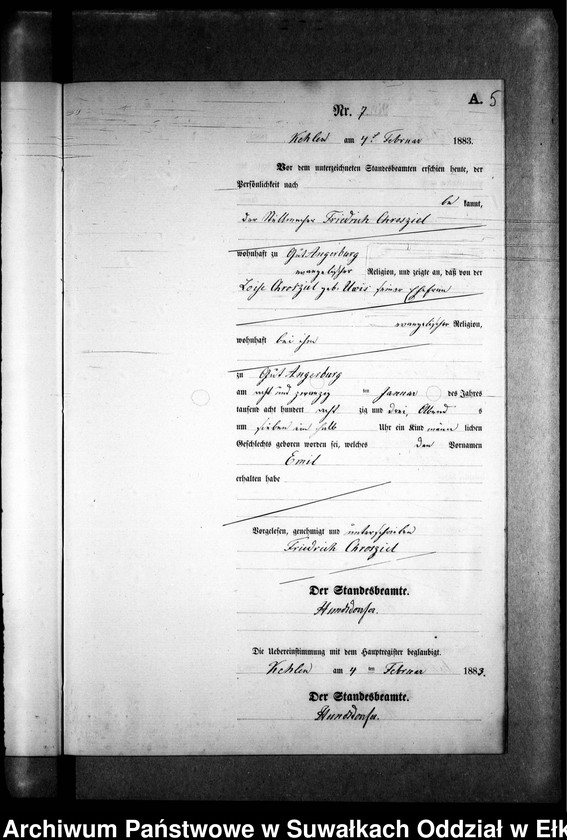 A. 5
Nr. 7
Kehlen am 4t Februar 1883.
Vor dem unterzeichneten Standesbeamten erschien heute, der
Persönlichkeit nach
be kannt,
der Friedrich Chrosziel
wohnhaft zu Gut Angerburg
evangelischer Religion, und zeigte an, daß von der
Chrosziel geb. seiner Ehefrau
evangelischer Religion,
wohnhaft bei ihm
zu Gut Angerburg
am acht und zwanzig im Januar des Jahres
tausend acht hundert acht zig und drei, Abend s
um sieben ein halb Uhr ein Kind männ lichen
Geschlechts geboren worden sei, welches den Vornamen
Emil
erhalten habe
Vorgelesen, genehmigt und unterschrieben
Friedrich Chrosziel
Der Standesbeamte.
Die Uebereinstimmung mit dem Hauptregister beglaubigt.
Kehlen am 4 ten Februar 1883.
Der Standesbeamte.
Archiwum Państwowe w Suwałkach Oddział w Ełk